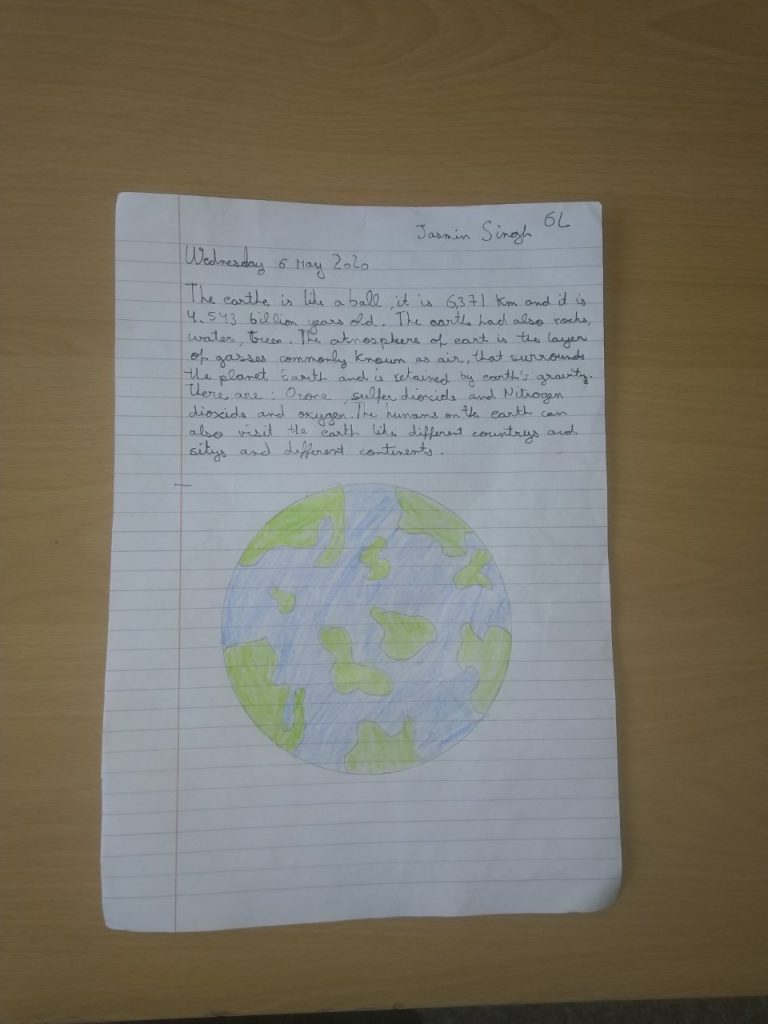 Jasmin Singh 6L
Wednesday 6 May 2020
The earthe is like a ball, it is 6,371 Km and it is
4.543 billion years old. The earth had also rocks,
water, trees. The atmosphere of eart is the layer
of gasses commonly known as air, that surrounds
the planet Earth and is retained by earth's gravity.
There are: Ozone, sulfer dioxide and Nitrogen
dioxide and oxygen. The humans on the earth can
also visit the earth like different countrys and
sitys and different continents.